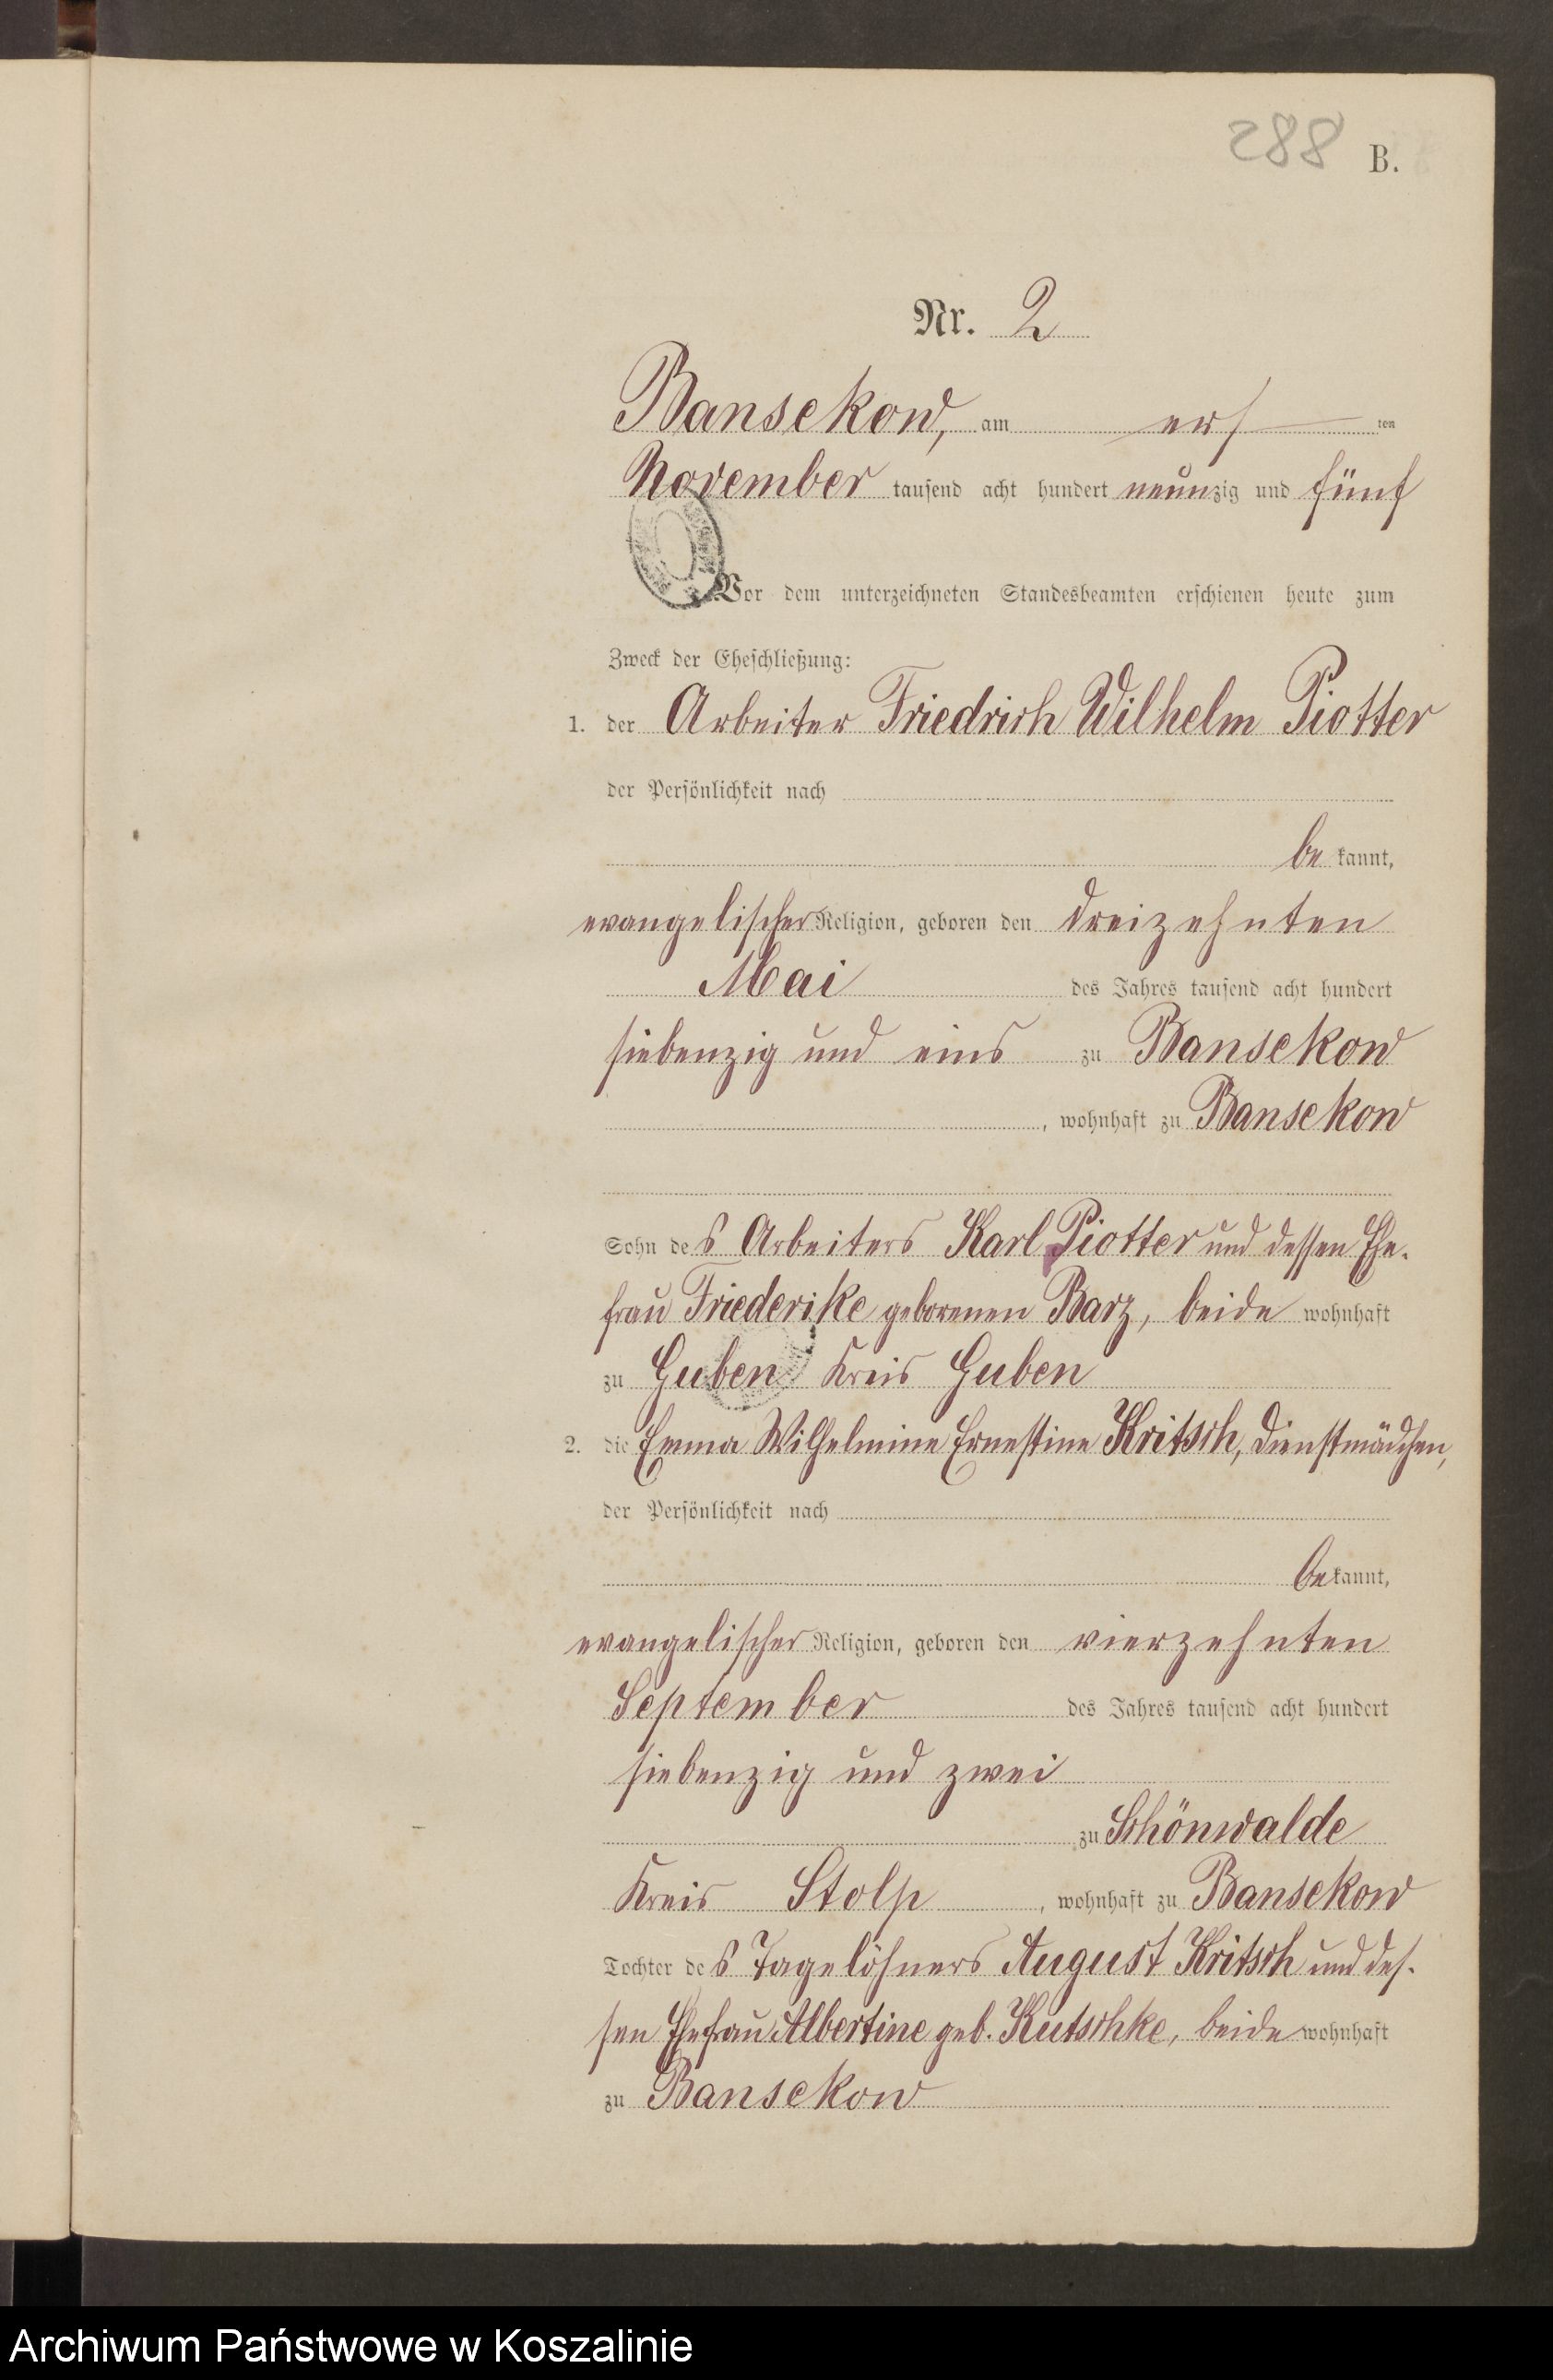 288 B.
Nr. 2
Bansekow, am ers ten
November tausend acht hundert neunzig und fünf
Vor dem unterzeichneten Standesbeamten erschienen heute zum
Zweck der Eheschließung:
1. der Arbeiter Friedrich Wilhelm Piotter
der Persönlichkeit nach
be kannt,
evangelischer Religion, geboren den dreizehnten
Mai des Jahres tausend acht hundert
siebenzig und eins zu Bansekow
, wohnhaft zu Bansekow
Sohn des Arbeiters Karl Piotter und dessen Ehe-
frau Friederike geborenen Barz, beide wohnhaft
zu Guben Kreis Guben
2. die Emma Wilhelmine Ernestine Kritsch, Dienstmädchen,
der Persönlichkeit nach
bekannt,
evangelischer Religion, geboren den vierzehnten
September des Jahres tausend acht hundert
siebenzig und zwei
zu Schönwalde
Kreis Stolp, wohnhaft zu Bansekow
Tochter des Tagelöhners August Kritsch und des-
sen Ehefrau Albertine geb. Kutschke, beide wohnhaft
zu Bansekow
Archiwum Państwowe w Koszalinie